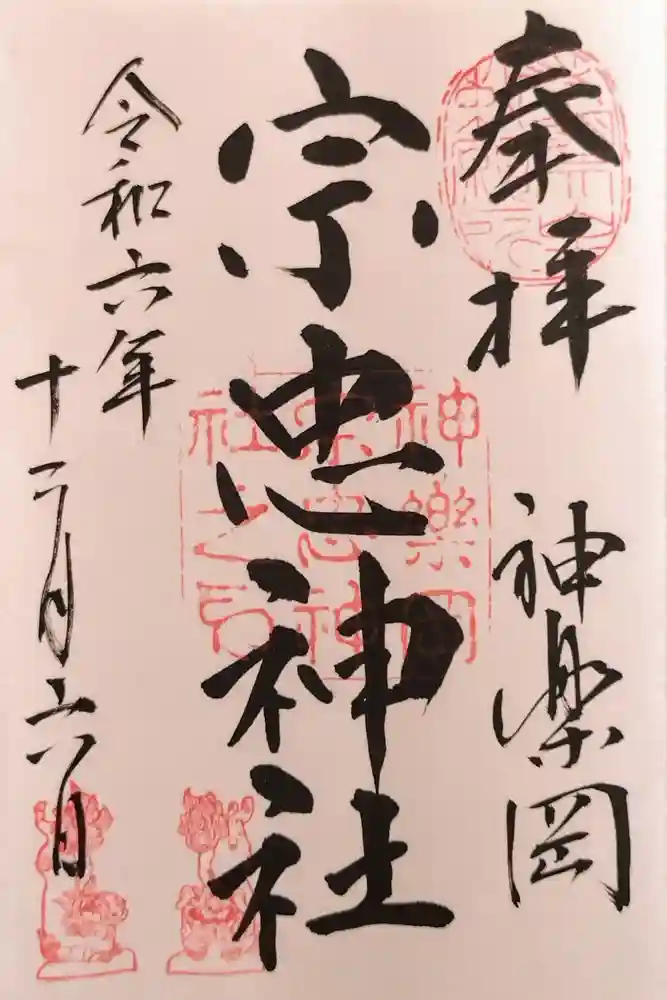 奉拝
神楽岡
宗忠神社
神楽岡宗忠神社之印
令和六年
十二月六日